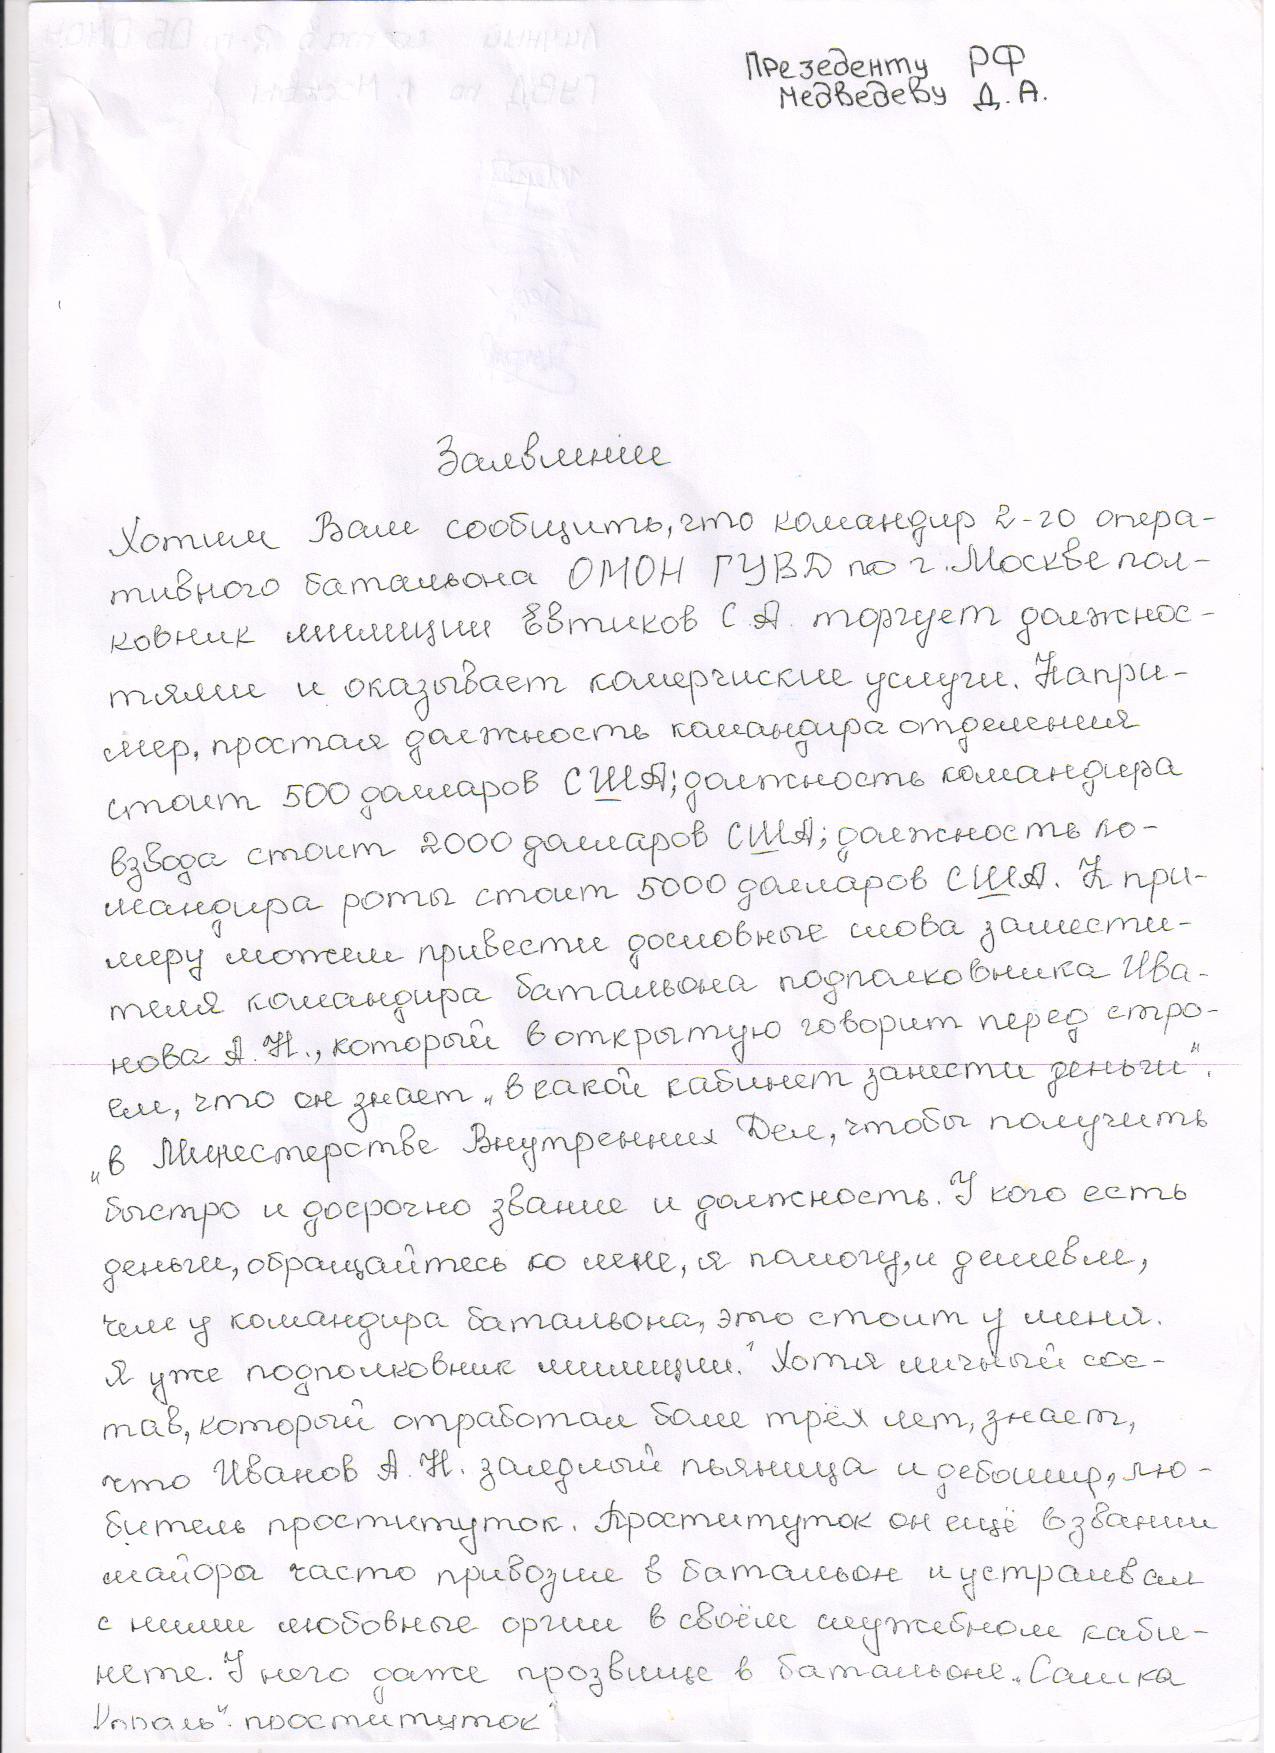 Президенту РФ
Медведеву Д.А.
Заявление
Хотим Вам сообщить, что командир 2-го опера-
тивного батальона ОМОН ГУВД по г. Москве пол-
ковник милиции Евтиков С.А. торгует должнос-
тями и оказывает комерчиские услуги. Напри-
мер, простая должность командира отделения
стоит 500 долларов США; должность командира
взвода стоит 2000 долларов США; должность ко-
мандира роты стоит 5000 долларов США. К при-
меру можем привести дословные слова замести-
теля командира батальона подполковника Ива-
нова А.Н., который в открытую говорит перед стро-
ем, что он знает „в какой кабинет занести деньги".
„в Министерстве Внутренних Дел, чтобы получить
быстро и досрочно звание и должность. У кого есть
деньги, обращайтесь ко мне, я помогу, и дешевле,
чем у командира батальона, это стоит у меня.
Я уже подполковник милиции." Хотя личный сос-
тав, который отработал боле трёх лет, знает,
что Иванов А.Н. заядлый пьяница и дебошир, лю-
битель проституток. Проституток он ещё в звании
майора часто привозил в батальон и устраивал
с ними любовные оргии в своём служебном каби-
нете. У него даже прозвище в батальоне „Сашка
Король". проституток"